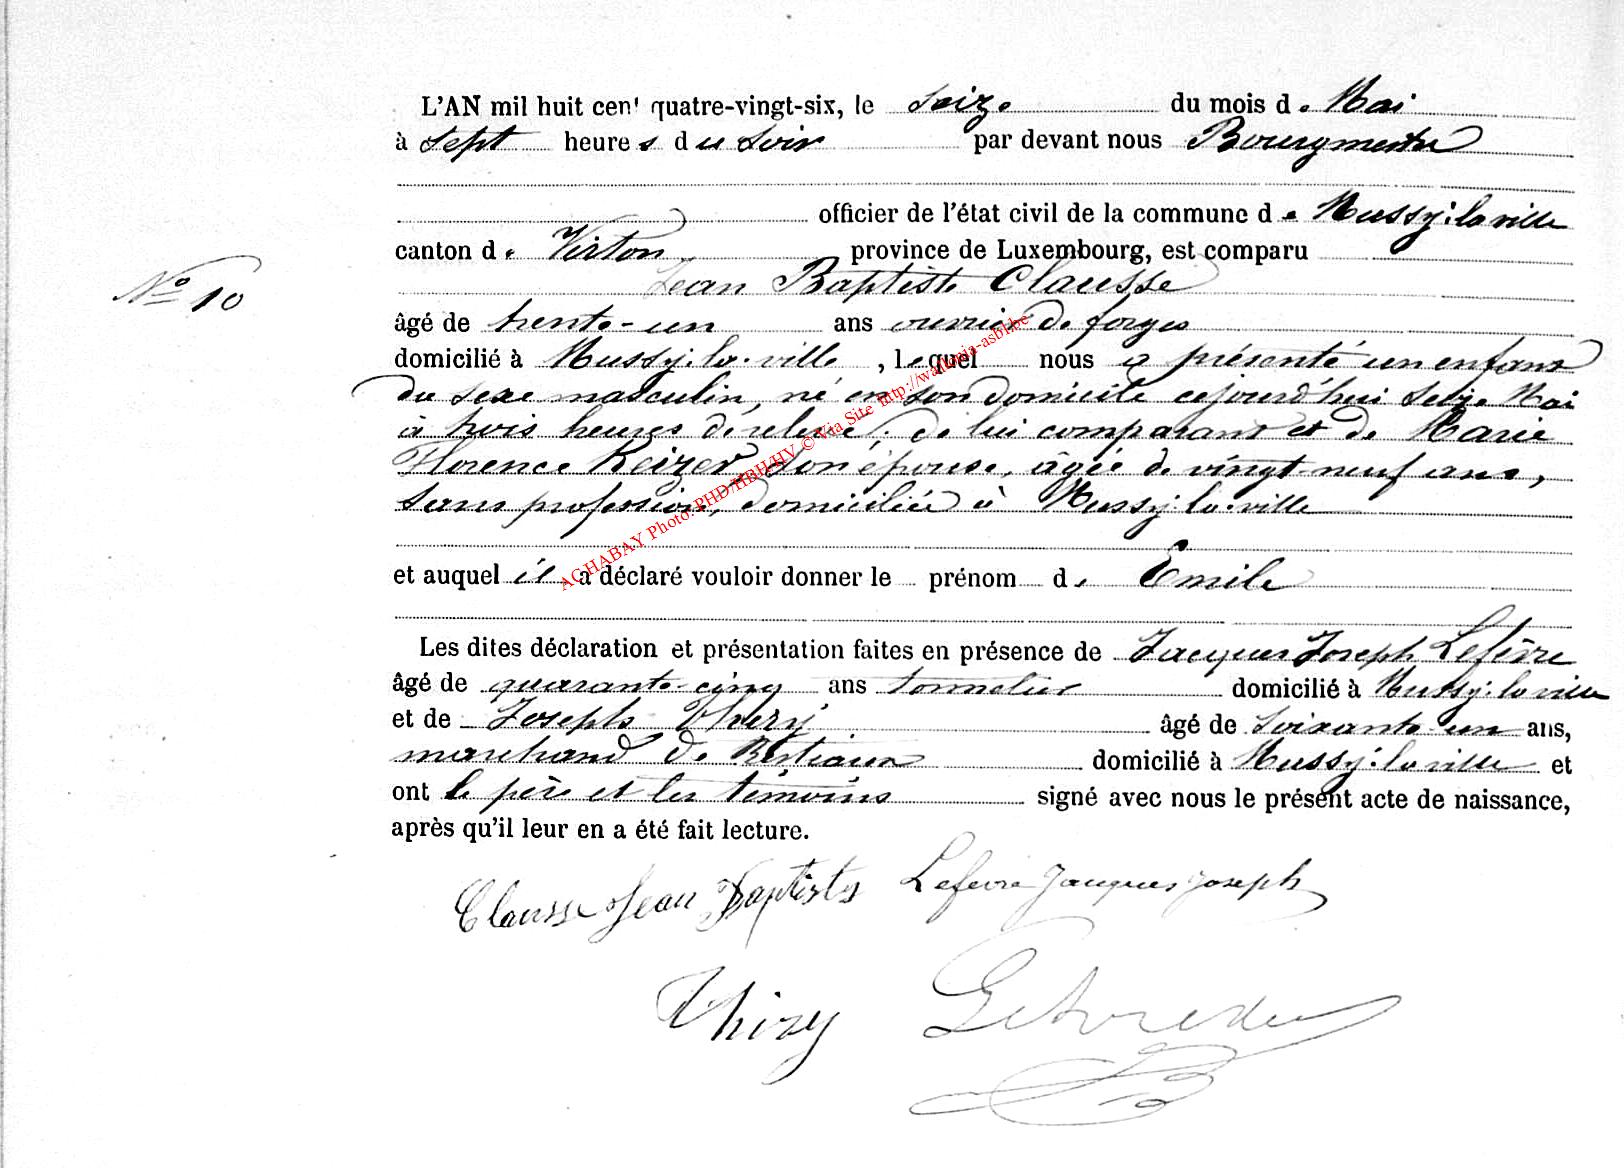 L'AN mil huit cent quatre-vingt-six, le seize du mois de Mai
à sept heures du soir par devant nous Bourgmestre
officier de l'état civil de la commune de Mussy-la-ville
canton de Virton province de Luxembourg, est comparu
Jean Baptiste Clausse
N° 10
âgé de trente-un ans ouvrier de forges
domicilié à Mussy-la-ville, lequel nous a présenté un enfant
du sexe masculin, né en son domicile cejourd'hui seize Mai
à trois heures de relevé, de lui comparant et de Marie
Florence Keizer son épouse, âgée de vingt-neuf ans,
sans profession, domiciliée à Mussy-la-ville
et auquel il a déclaré vouloir donner le prénom de Emile
Les dites déclaration et présentation faites en présence de Jacques Joseph Lefèvre
âgé de quarante-cinq ans tonnelier domicilié à Mussy-la-ville
et de Joseph Thiry âgé de soixante-un ans,
marchand de Bestiaux domicilié à Mussy-la-ville et
ont le père et les témoins signé avec nous le présent acte de naissance,
après qu'il leur en a été fait lecture.
Clausse Jean Baptiste Lefevre Jacques Joseph
Thiry
AGHABAY Photo: PHD/HBH/HV © Via Site http://wallonia-asbl.be